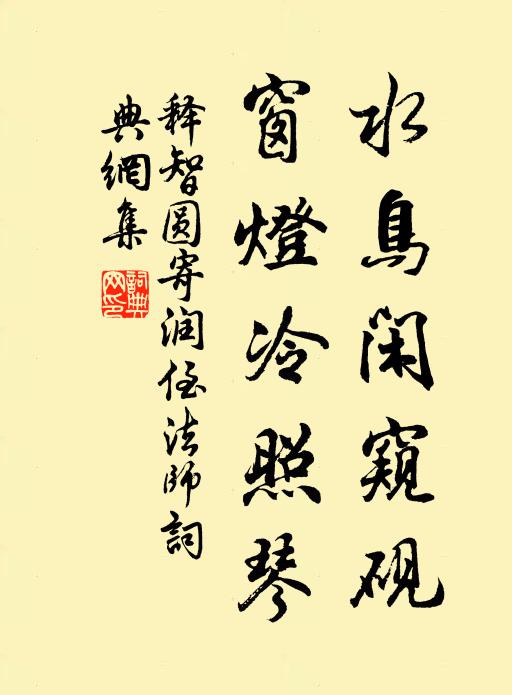 水鳥閑窺硯
窗燈冷照琴
释智圆寄润侄法師詞
典網集
詞典网印